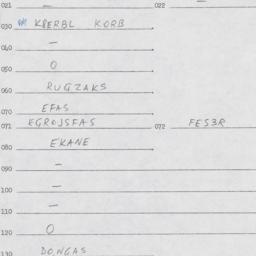 021 — 022 —
030 KDERBL KORB
040 —
050 O
060 RUGZAKS
070 EFAS
071 EGROJSFAS 072 FES3R
080 EKANE
090 —
100 —
110 —
120 O
130 DONGAS